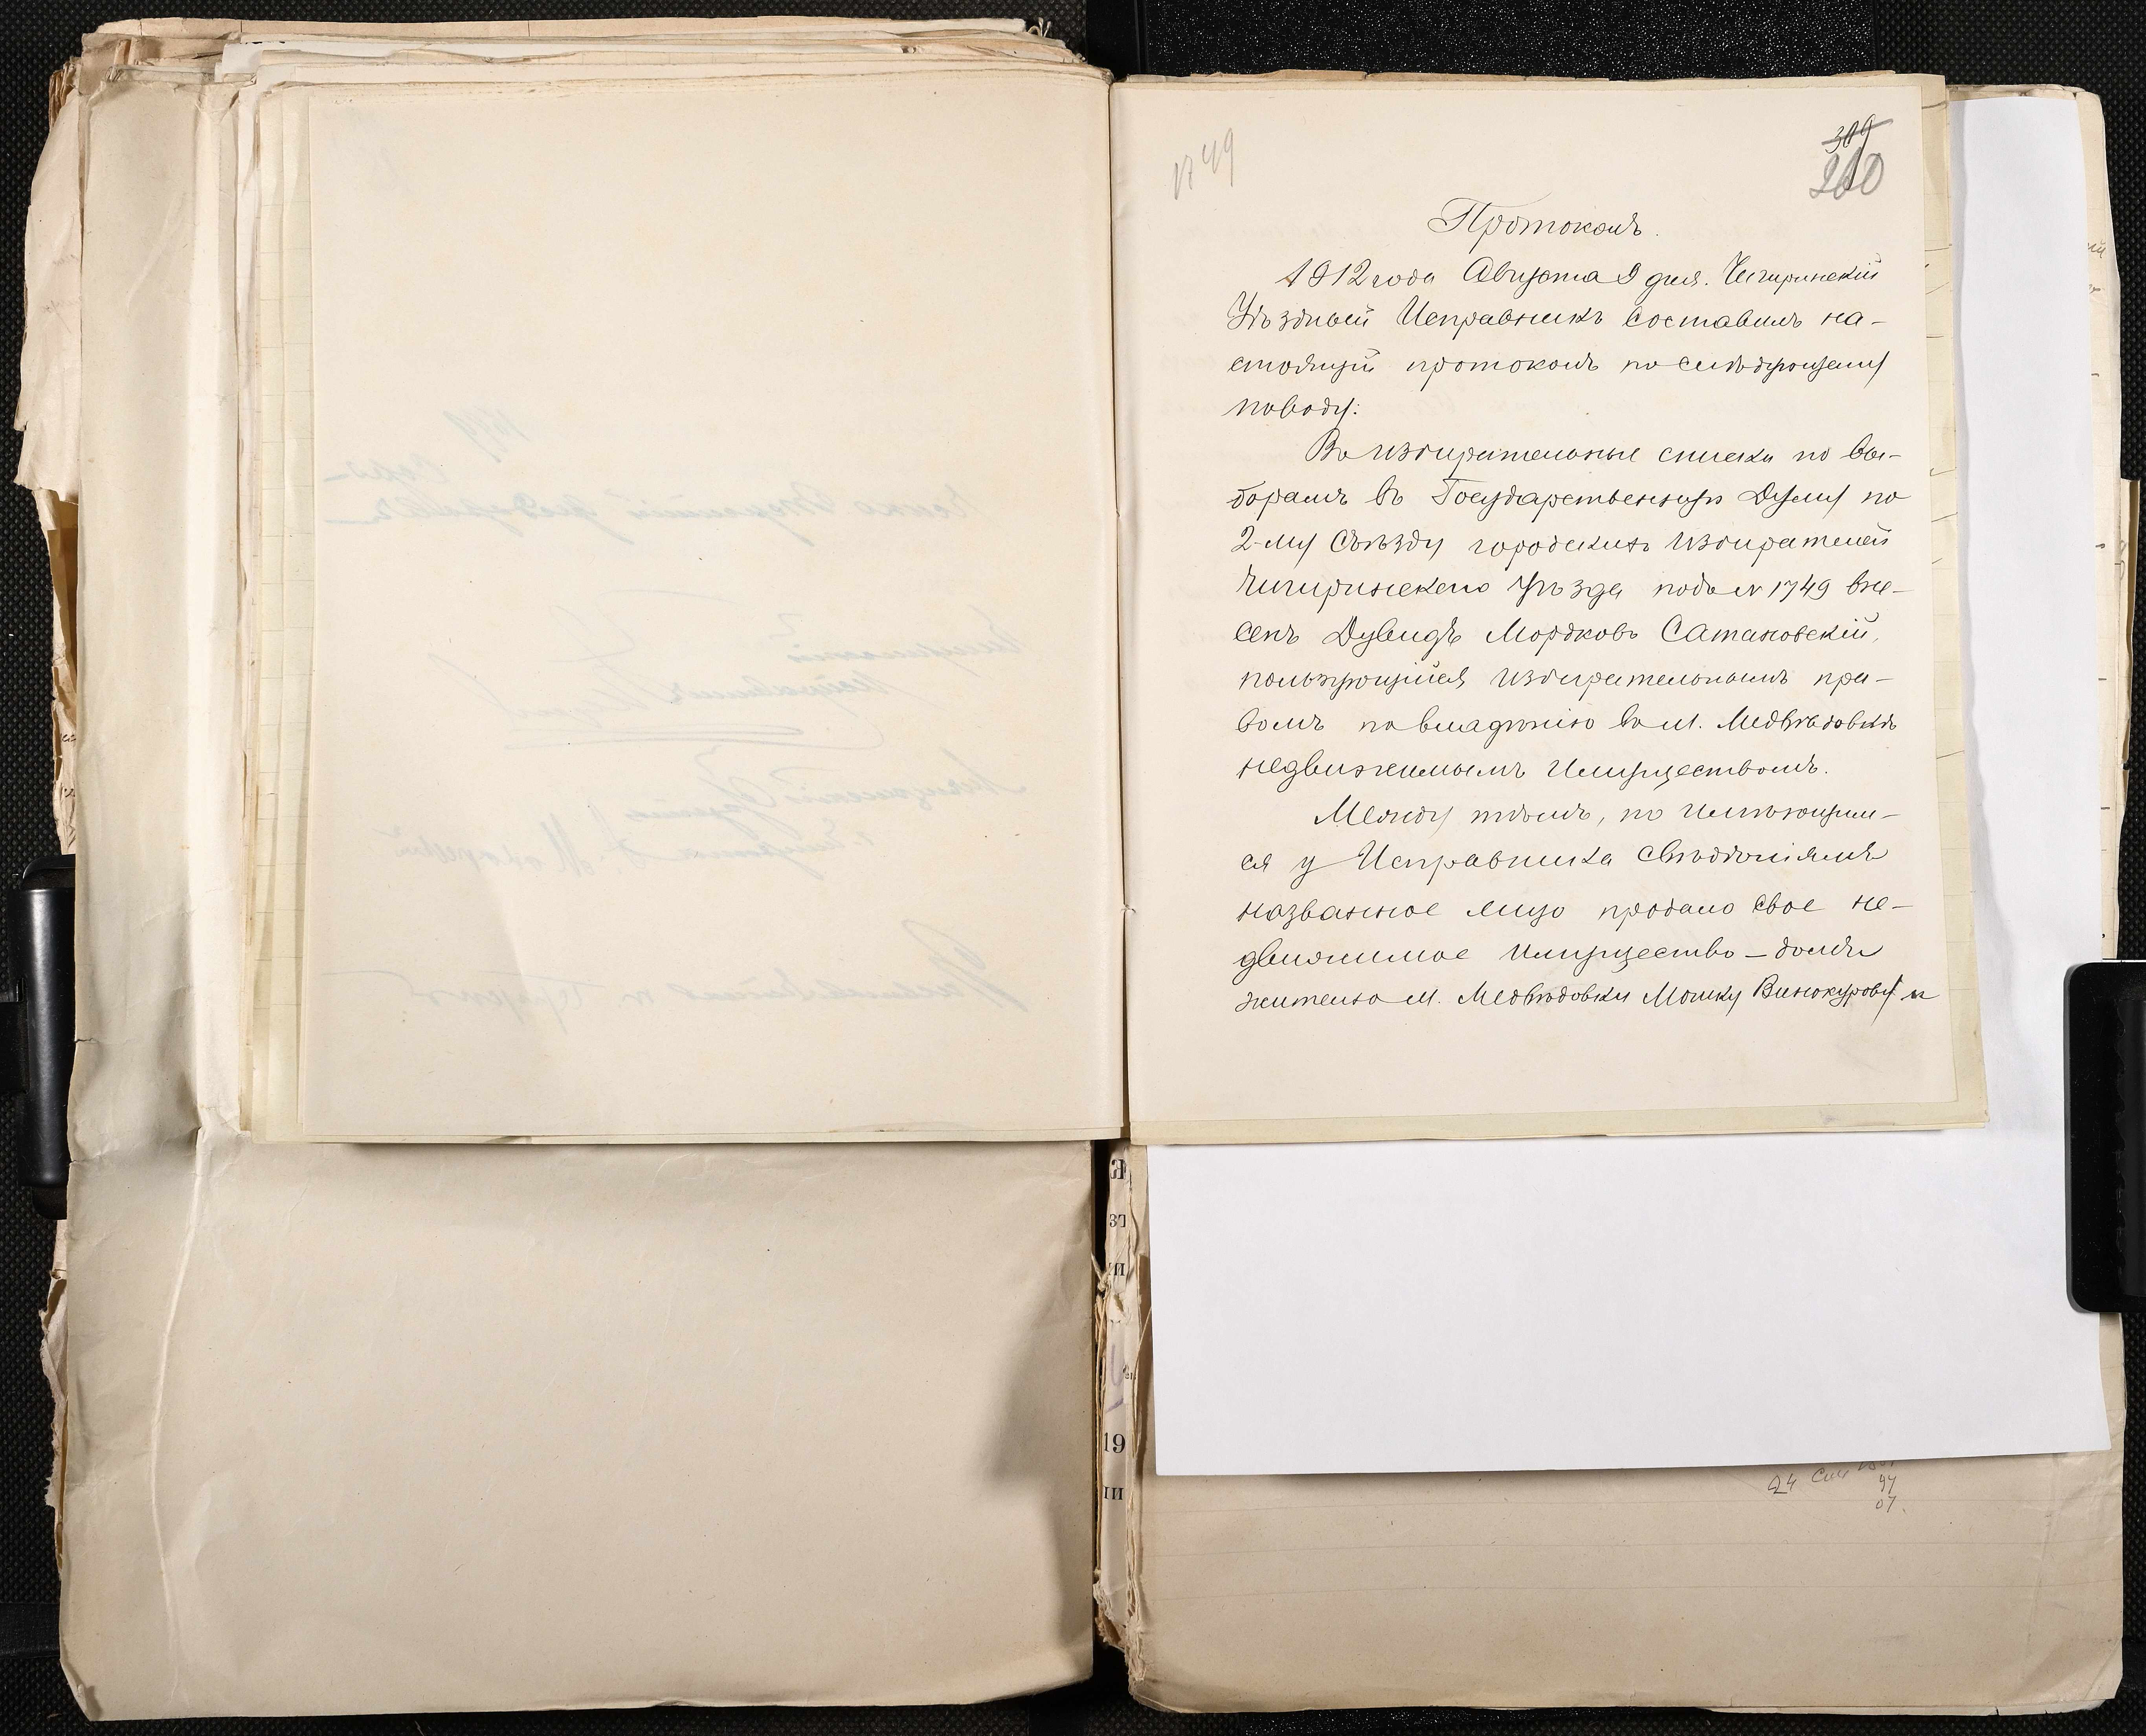 1749
309
260
Протоколъ.
1912 года Августа 9 дня. Чигиринскій
Уѣздный Исправникъ составилъ на-
стоящій протоколъ по слѣдующему
поводу:
Въ избирательные списки по вы-
борамъ въ Государственную Думу по
2-му съѣзду городскихъ избирателей
Чигиринскаго уѣзда подъ № 1749 вне-
сенъ Дувидъ Мордковъ Сатановскій,
пользующійся избирательнымъ пра-
вомъ по владѣнію въ м. Медвѣдовкѣ
недвижимымъ имуществомъ.
Между тѣмъ, по имѣющим-
ся у Исправника свѣдѣніямъ
названное лицо продало свое не-
движимое имущество - домъ
жителю м. Медвѣдовки Мошку Винокурову и
19
24
97
07.